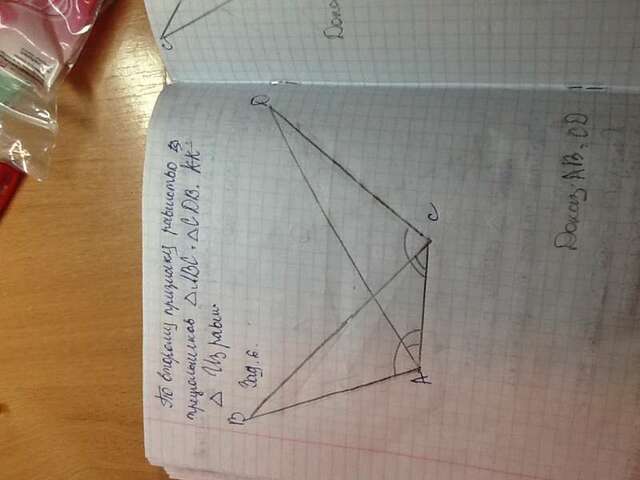 По второму признаку равенство
треугольников △ABC = △CDB. КК
△ Из равн
Зад. 6.
B
D
A
C
Доказ: AB = CD
C
Дока